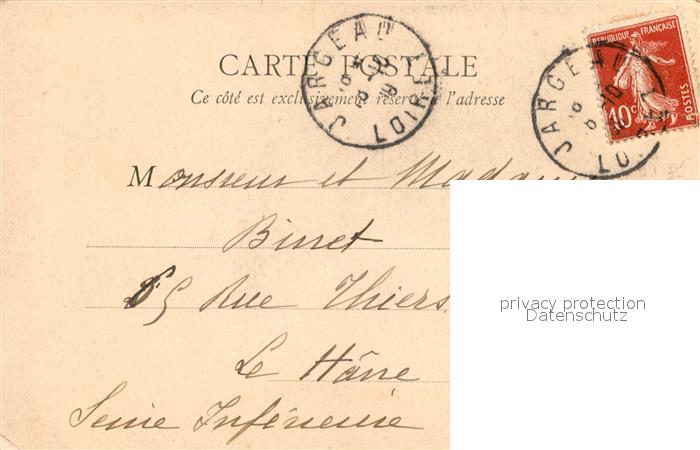 CARTE POSTALE
Ce côté est exclusivement réservé à l'adresse
JARGEAU LOIRET
JARGEAU LOIRET
REPUBLIQUE FRANÇAISE
10c
POSTES
Monsieur et Madame
Binet
65 Rue Thiers
Le Hâvre
Seine Inférieure
privacy protection
Datenschutz